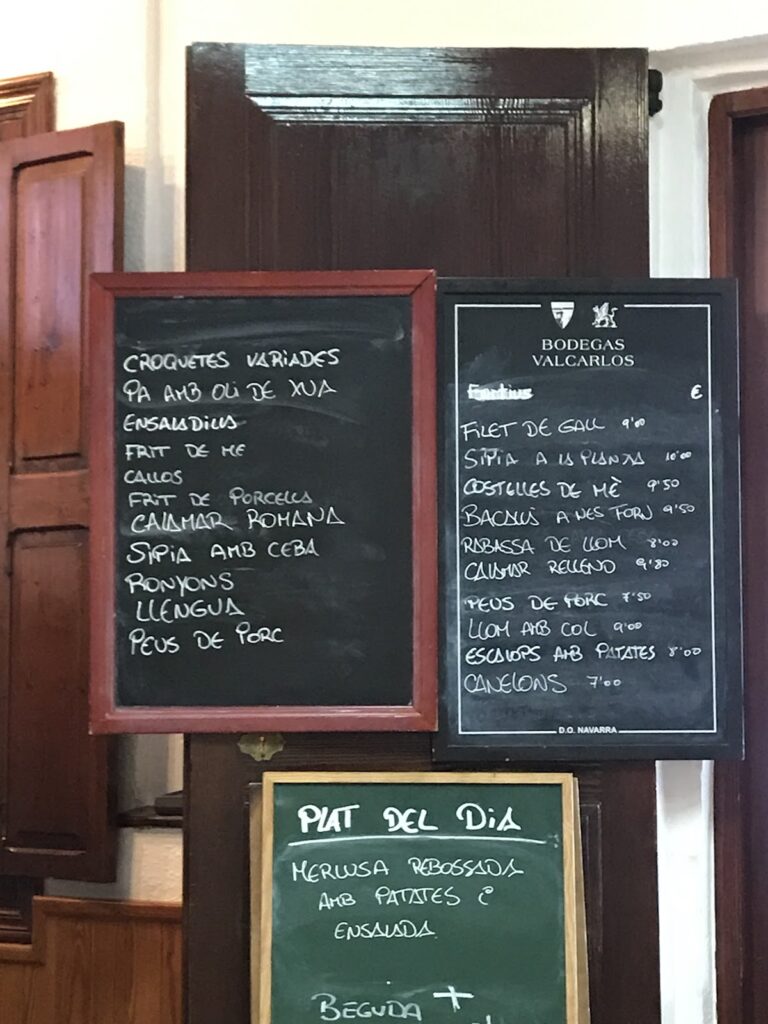 CROQUETES VARIADES
PA AMB OLI DE XUA
ENSALADILLA
FRIT DE ME
CALLOS
FRIT DE PORCELLA
CALAMAR ROMANA
SIPIA AMB CEBA
RONYONS
LLENGUA
PEUS DE PORC
BODEGAS
VALCARLOS
€
FILET DE GALL 9'00
SIPIA A LA PLANXA 10'00
COSTELLES DE MÈ 9'50
BACALLÀ A NES FORN 9'50
RABASSA DE LLOM 8'00
CALAMAR RELLENO 9'80
PEUS DE PORC 7'50
LLOM AMB COL 9'00
ESCALOPS AMB PATATES 8'00
CANELONS 7'00
D.O. NAVARRA
PLAT DEL DIA
MERLUSA REBOSSADA
AMB PATATES i
ENSALADA
BEGUDA +